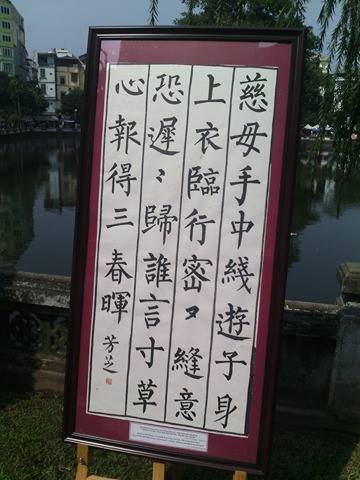 慈母手中綫遊子身
上衣臨行密〻縫意
恐遲〻歸誰言寸草
心報得三春暉
芳芝